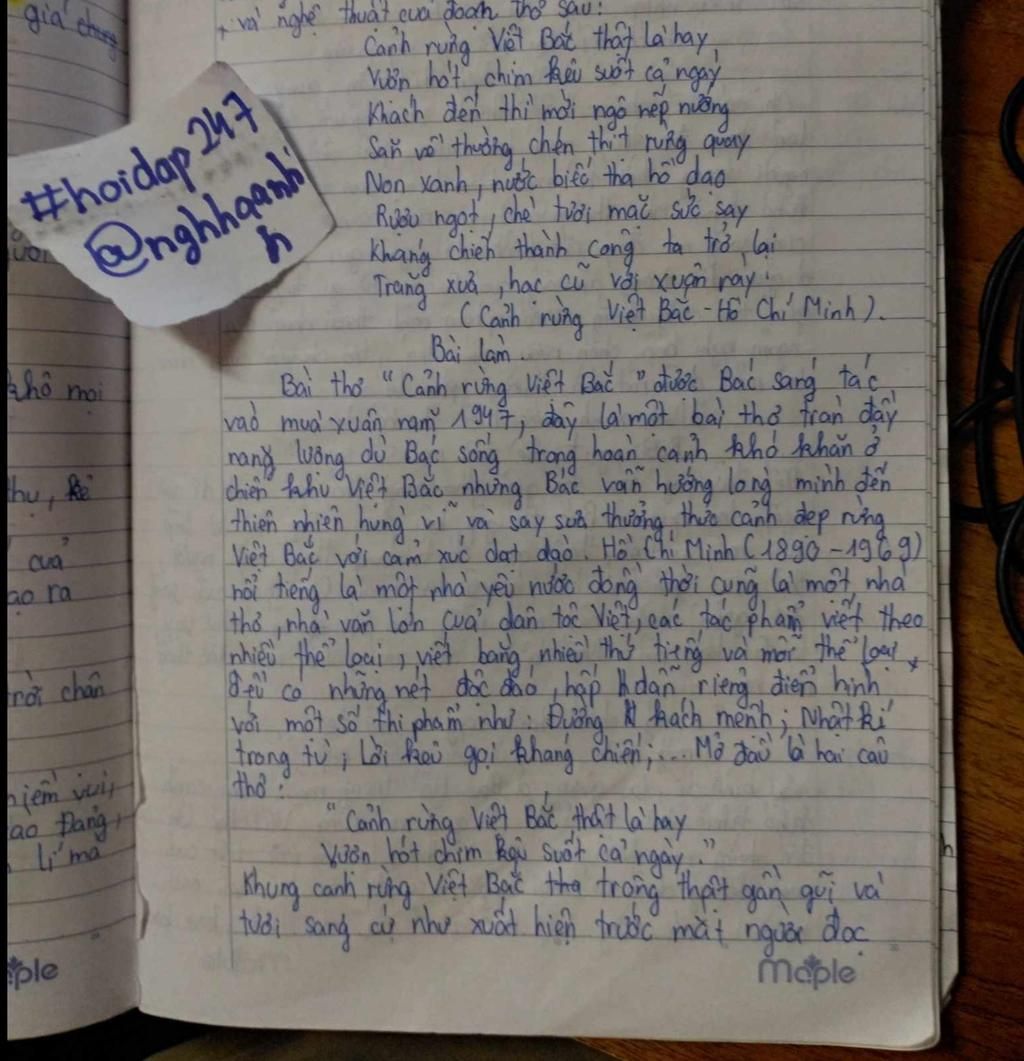 giá chung
+ và nghệ thuật của đoạn thơ sau:
Cảnh rừng Việt Bắc thật là hay
Vượn hót, chim kêu suốt cả ngày
Khách đến thì mời ngô nếp nướng
Săn về thường chén thịt rừng quay
Non xanh, nước biếc tha hồ dạo
Rượu ngọt, chè tươi mặc sức say
Kháng chiến thành công ta trở lại
Trăng xưa, hạc cũ với xuân này.
(Cảnh rừng Việt Bắc - Hồ Chí Minh).
#hoidap247
@nghhqanh
h
Bài làm.
Bài thơ "Cảnh rừng Việt Bắc" được Bác sáng tác
vào mùa xuân năm 1947, đây là một bài thơ tràn đầy
năng lượng dù Bác sống trong hoàn cảnh khó khăn ở
chiến khu Việt Bắc nhưng Bác vẫn hướng lòng mình đến
thiên nhiên hùng vĩ và say sưa thưởng thức cảnh đẹp rừng
Việt Bắc với cảm xúc dạt dào. Hồ Chí Minh (1890-1969)
nổi tiếng là một nhà yêu nước đồng thời cũng là một nhà
thơ, nhà văn lớn của dân tộc Việt, các tác phẩm viết theo
nhiều thể loại, viết bằng nhiều thứ tiếng và mỗi thể loại
đều có những nét độc đáo, hấp dẫn riêng điển hình
với một số thi phẩm như: Đường kách mệnh; Nhật kí
trong tù; Lời kêu gọi kháng chiến;... Mở đầu là hai câu
thơ:
"Cảnh rừng Việt Bắc thật là hay
Vượn hót chim kêu suốt cả ngày."
Khung cảnh rừng Việt Bắc thơ trông thật gần gũi và
tươi sáng cứ như xuất hiện trước mắt người đọc
khô mọi
thụ, kẻ
của
ạo ra
rời chân
niềm vui,
ao Đảng,
lí mà
ple
maple